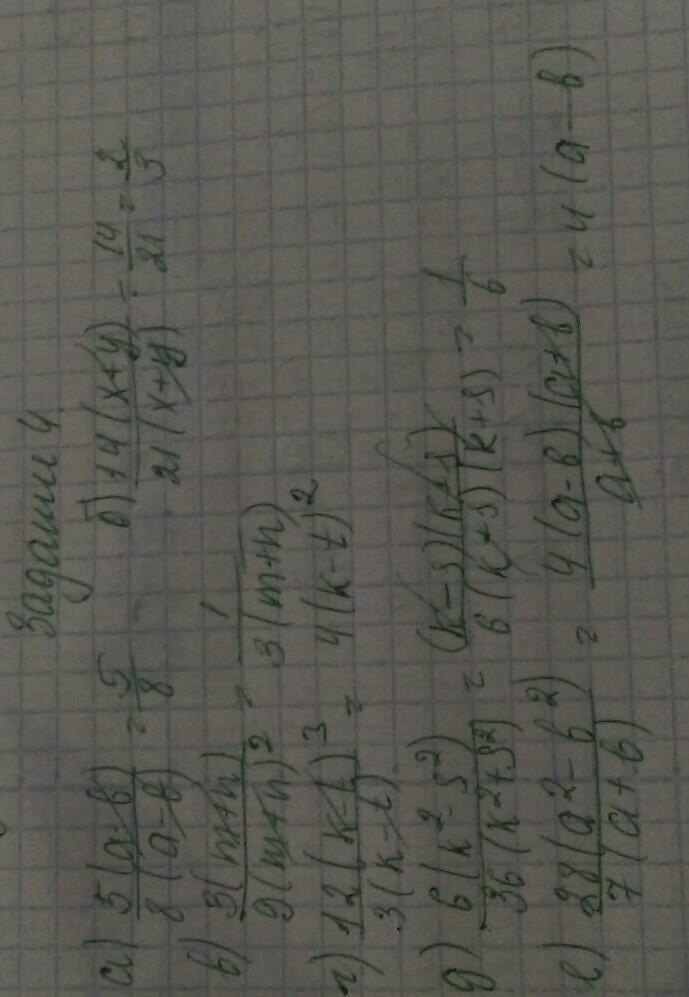 Задание 4
а) 5(a-b)/8(a-b) = 5/8   б) 14(x+y)/21(x+y) = 14/21 = 2/3
в) 3(m+n)/9(m+n)² = 1/3(m+n)
г) 12(k-t)³/3(k-t) = 4(k-t)²
д) 6(k²-s²)/36(k²+s²) = (k-s)(k+s)/6(k+s)(k+s) = 1/6
е) 28(a²-b²)/7(a+b) = 4(a-b)(a+b)/a+b = 4(a-b)